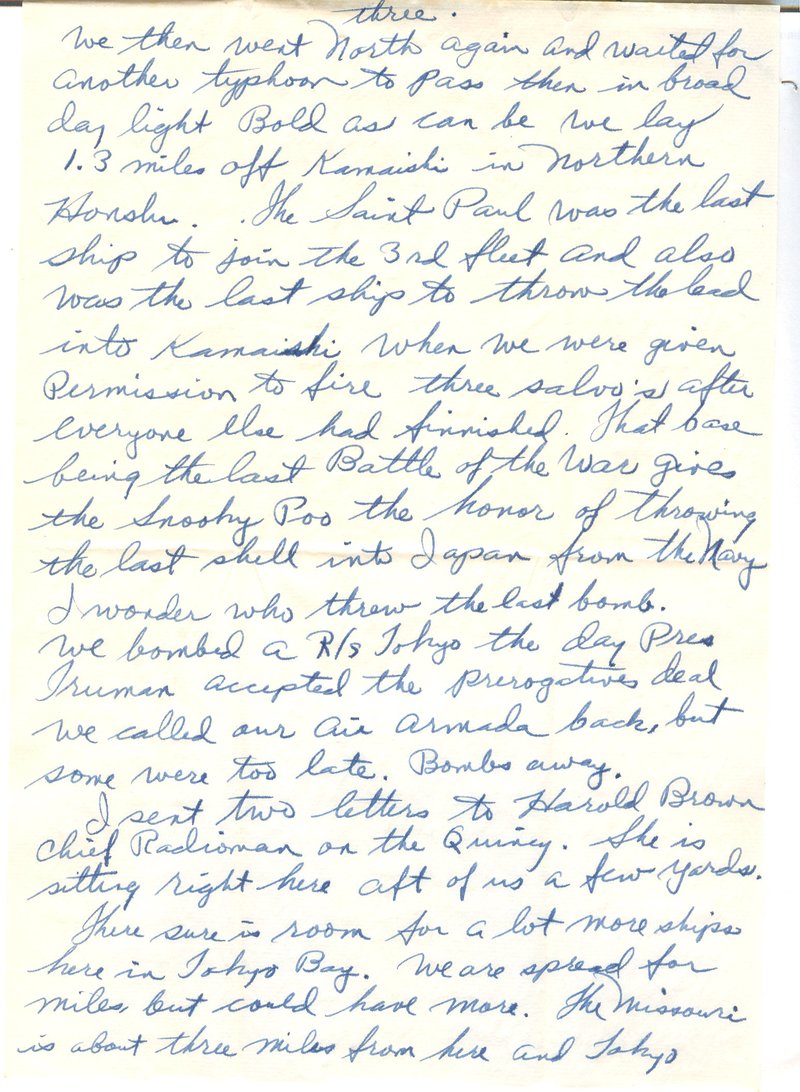 three.
We then went North again and waited for
another typhoon to pass then in broad
day light Bold as can be we lay
1.3 miles off Kamaishi in Northern
Honshu. . The Saint Paul was the last
ship to join the 3rd fleet and also
was the last ship to throw the lead
into Kamaishi when we were given
Permission to fire three salvo's after
everyone else had finnished. That base
being the last Battle of the War gives
the Snooky Poo the honor of throwing
the last shell into Japan from the Navy
I wonder who threw the last bomb.
We bombed a R/s Tokyo the day Pres
Truman accepted the prerogatives deal
we called our air armada back, but
some were too late. Bombs away.
I sent two letters to Harold Brown
Chief Radioman on the Quincy. She is
sitting right here aft of us a few yards.
There sure is room for a lot more ships
here in Tokyo Bay. We are spread for
miles, but could have more. The Missouri
is about three miles from here and Tokyo